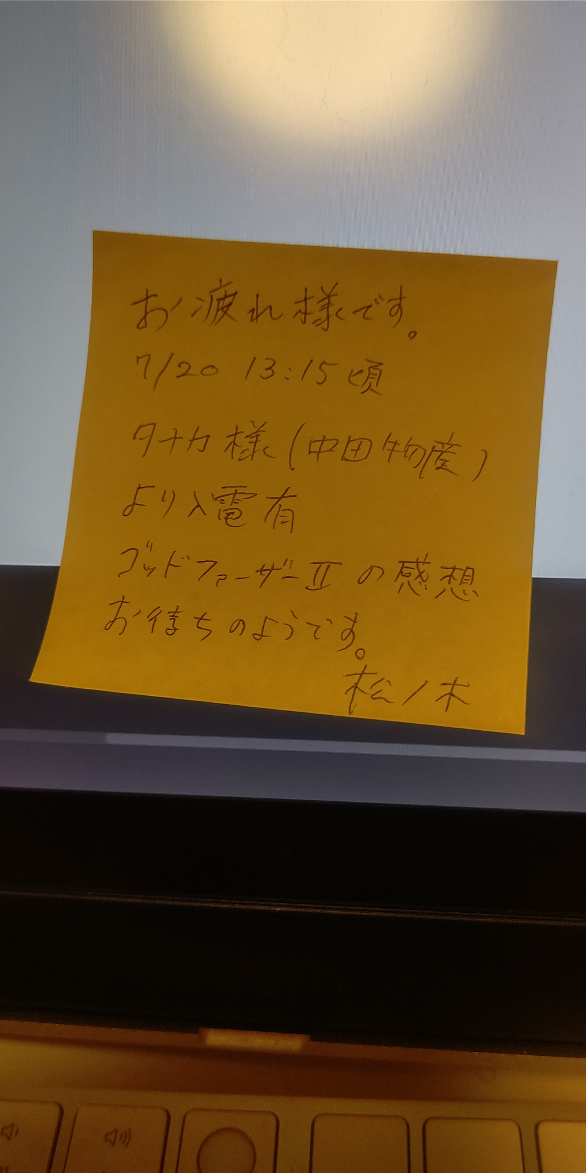 お疲れ様です。
7/20 13:15頃
タナカ様(中田物産)
より入電有
ゴッドファーザーⅡの感想
お待ちのようです。
松ノ木